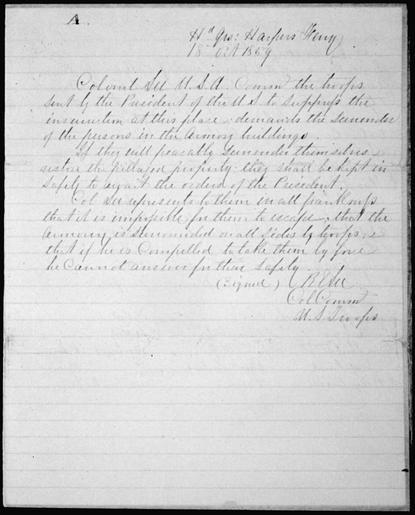 A
Hd Qrs: Harpers Ferry
18 Oct 1859
Colonel Lee U.S.A. Comm the troops
sent by the President of the U.S to suppress the
insurrection at this place, demands the surrender
of the persons in the Armory buildings.
If they will peaceably surrender themselves &
restore the pillaged property, they shall be kept in
safety to await the orders of the President.
Col Lee represents to them in all frankness
that it is impossible for them to escape, that the
armory is surrounded on all sides by troops, &
that if he is compelled to take them by force
he cannot answer for their safety.
(Signed) R E Lee
Col Comm
U.S Troops